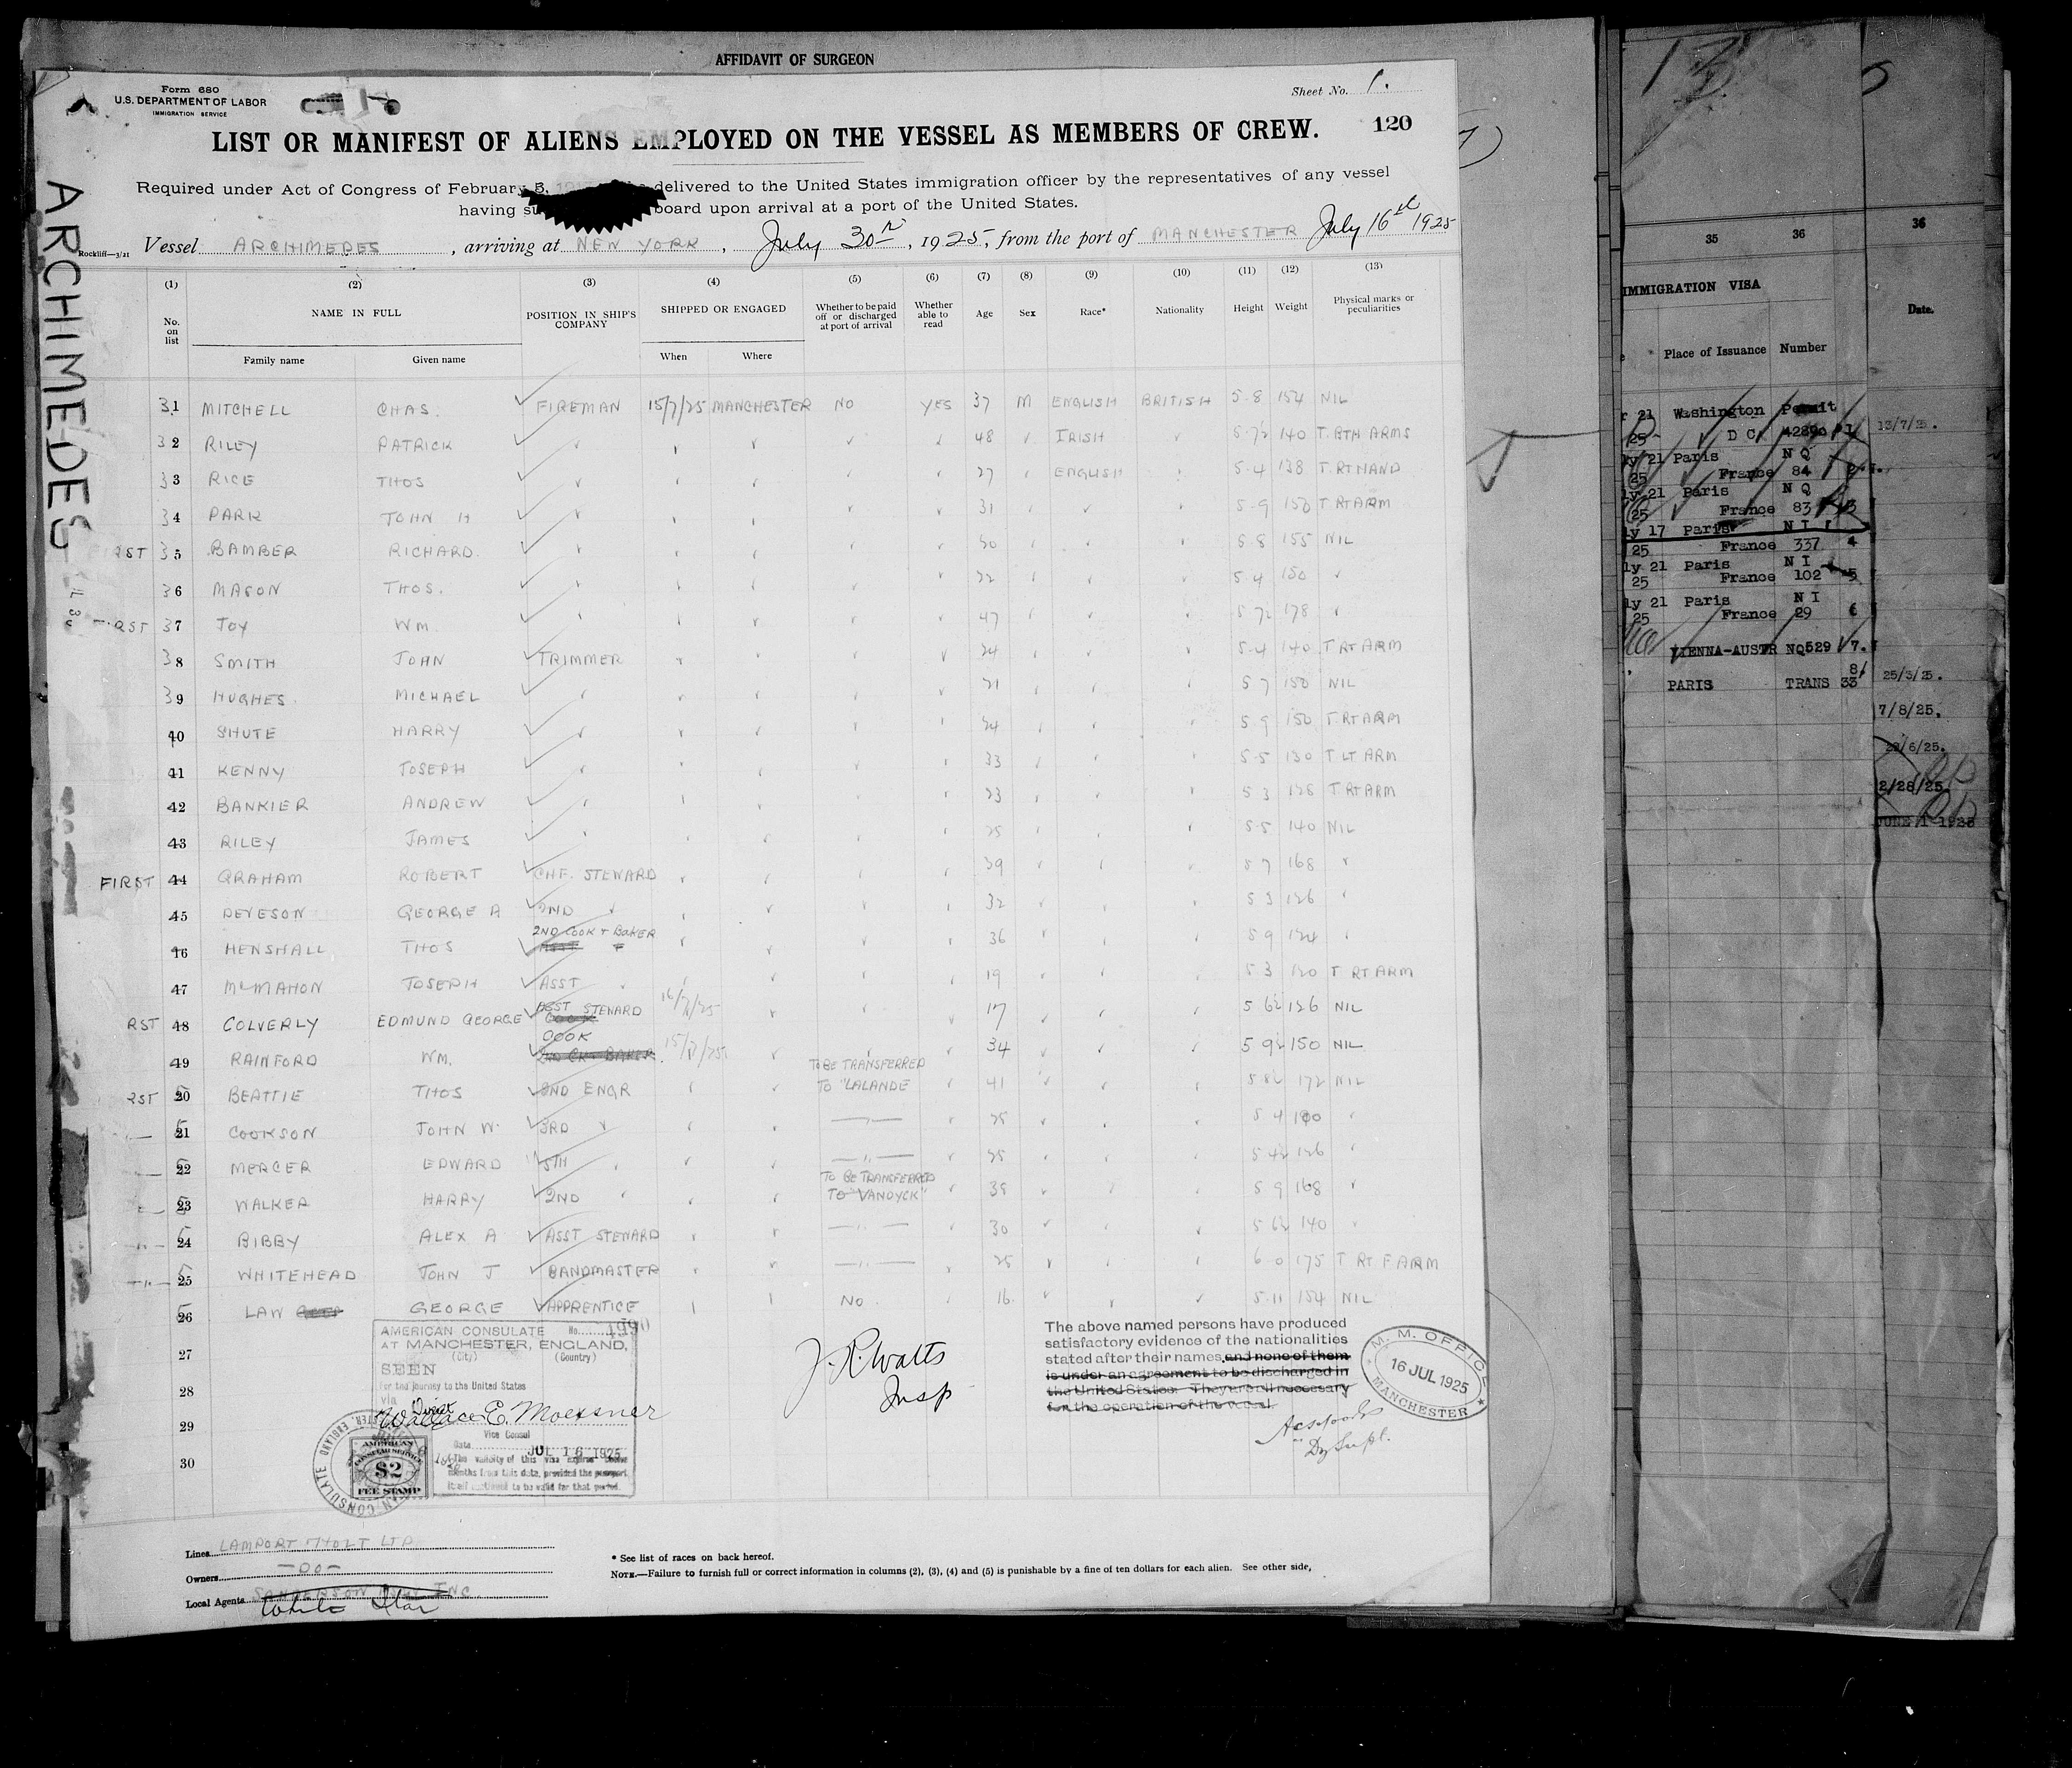 AFFIDAVIT OF SURGEON
Form 680
U.S. DEPARTMENT OF LABOR
IMMIGRATION SERVICE
Sheet No. 1.
LIST OR MANIFEST OF ALIENS EMPLOYED ON THE VESSEL AS MEMBERS OF CREW.
120
Required under Act of Congress of February 5, delivered to the United States immigration officer by the representatives of any vessel
having board upon arrival at a port of the United States.
Rockliff—3/21
Vessel ARCHIMEDES, arriving at NEW YORK, July 30th, 1925, from the port of MANCHESTER July 16th 1925
ARCHIMEDES
(1) (2) (3) (4) (5) (6) (7) (8) (9) (10) (11) (12) (13)
No. on list NAME IN FULL POSITION IN SHIP'S COMPANY SHIPPED OR ENGAGED Whether to be paid off or discharged at port of arrival Whether able to read Age Sex Race* Nationality Height Weight Physical marks or peculiarities
Family name Given name When Where
31 MITCHELL CHAS. FIREMAN 15/7/25 MANCHESTER NO YES 37 M ENGLISH BRITISH 5-8 154 NIL
32 RILEY PATRICK 48 IRISH 5-7½ 140 T. BTH ARMS
33 RICE THOS 27 ENGLISH 5-4 138 T. RT HAND
34 PARK JOHN H 31 5-9 150 T RT ARM
35 BAMBER RICHARD. 30 5-8 155 NIL
36 MASON THOS. 22 5-4 150
37 JOY WM 47 5-7½ 178
38 SMITH JOHN TRIMMER 24 5-4 140 T RT ARM
39 HUGHES MICHAEL 21 5 7 150 NIL
40 SHUTE HARRY 24 5-9 150 T. RT ARM
41 KENNY JOSEPH 33 5-5 130 T LT ARM
42 BANKIER ANDREW 23 5 3 T. RT ARM
43 RILEY JAMES 25 5-5 140 NIL
FIRST 44 GRAHAM ROBERT CHF. STEWARD 39 5 7 168
45 DEVESON GEORGE A 2ND 32 5 3 126
46 HENSHALL THOS 2ND COOK + BAKER 36 5 9 124
47 McMAHON JOSEPH ASST 19 5 3 120 T RT ARM
RST 48 COLVERLY EDMUND GEORGE ASST STEWARD 16/7/25 17 5 6½ 126 NIL
49 RAINFORD WM. COOK 15/7/25 34 5 9½ 150 NIL
RST 50 BEATTIE THOS 2ND ENGR TO BE TRANSFERRED TO "LALANDE 41 5-8½ 172 NIL
51 COOKSON JOHN W. 3RD 25 5 4
52 MERCER EDWARD 5TH 25 5-4½ 126
53 WALKER HARRY 2ND TO BE TRANSFERRED TO "VANDYCK" 39 5 9 168
54 BIBBY ALEX A ASST STEWARD 30 5 6½ 140
55 WHITEHEAD JOHN J BANDMASTER 25 6 0 175 T RT F ARM
56 LAW GEORGE APPRENTICE NO 16 5-11 154 NIL
27
28
29
30
AMERICAN CONSULATE No.
AT MANCHESTER, ENGLAND,
(City) (Country)
SEEN
For the journey to the United States
via Direct
Wallace E. Moessner
Vice Consul
Date JUL 16 1925
The validity of this visa expires
months from this date, provided the passport
itself continues to be valid for that period.
AMERICAN
CONSULAR SERVICE
$2
FEE STAMP
J. R. Watts
Insp
The above named persons have produced
satisfactory evidence of the nationalities
stated after their names and none of them
is under an agreement to be discharged in
the United States. They are all necessary
for the operation of the vessel.
M. M. OFFICE
16 JUL 1925
MANCHESTER
Dy Supt.
Lines LAMPORT & HOLT LTD
Owners —DO—
Local Agents SANDERSON & SON INC
White Star
* See list of races on back hereof.
NOTE.—Failure to furnish full or correct information in columns (2), (3), (4) and (5) is punishable by a fine of ten dollars for each alien. See other side,
35 36 36
IMMIGRATION VISA
Date.
Place of Issuance Number
21 Washington Permit
25 D C. 42890 1
13/7/25.
21 Paris N Q
France 84 2
21 Paris N Q
25 France 83 3
17 Paris N I
25 France 337 4
21 Paris N I
25 France 102 5
21 Paris N I
25 France 29 6
VIENNA-AUSTR NQ529 7.
8
PARIS TRANS 33
25/3/25.
7/8/25.
22/6/25.
2/28/25.
JUNE 1 1925